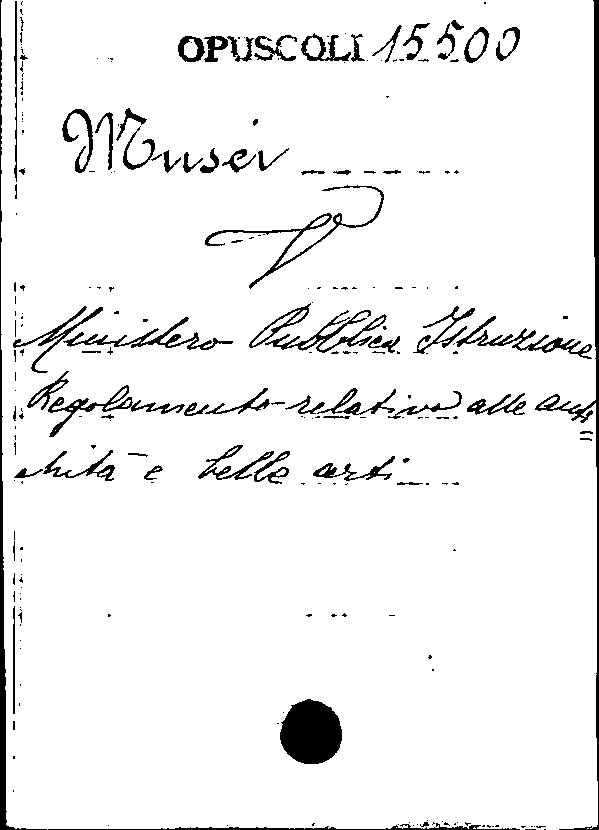 OPUSCOLI 15500
Musei
V
Ministero Pubblica Istruzione
Regolamento relativo alle anti=
chità e belle arti